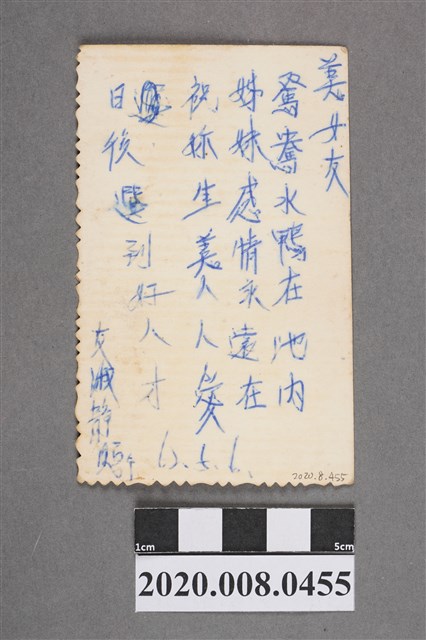 美女友
鴛鴦水鴨在池内
姊妹感情永遠在
祝妳生美人人愛
遇到好人才
日後
友淑靜贈上
62.5.6.
2020.8.455
1cm
5cm
2020.008.0455